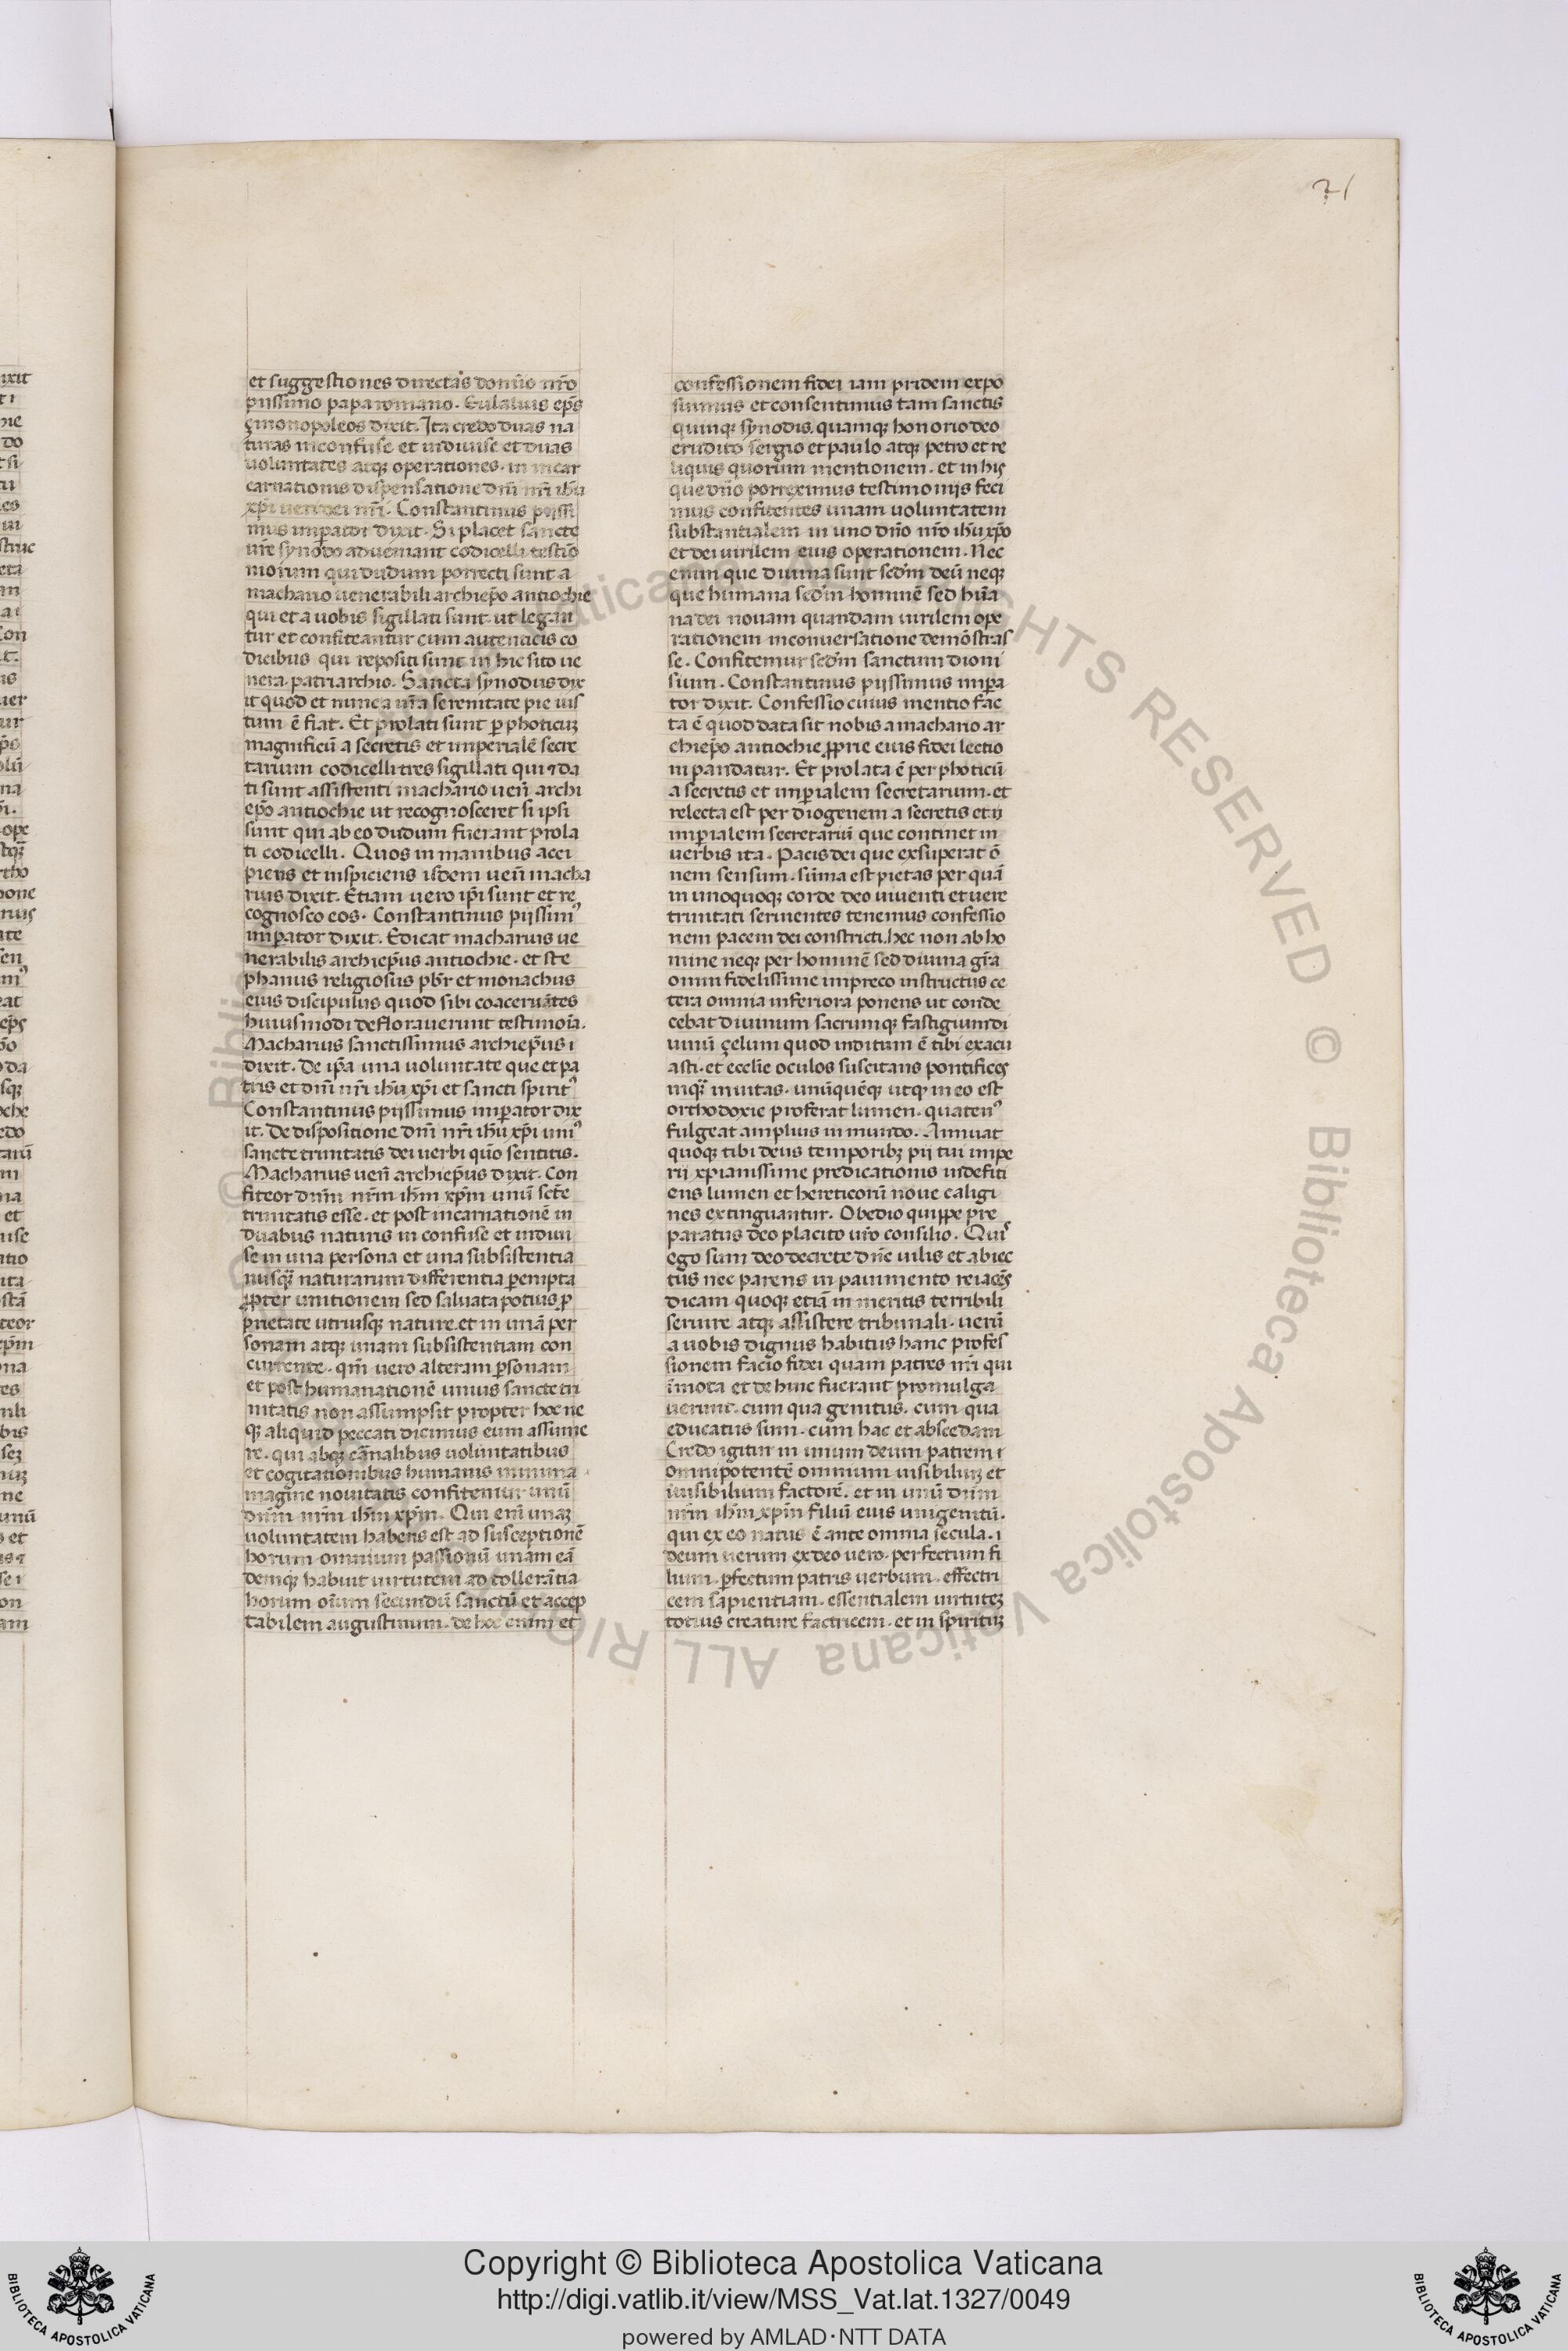 21
et suggestiones directas domĩo nr̃o
piissimo papa romano. Eulalius ep̃s
çinonopoleos dixit. Ita credo duas na
turas inconfuse et indiuise et duas
uoluntates atqꝫ operationes. in incar
carnationis dispensatione dñi nr̃i ih̃u
xp̃i ueri dei nr̃i. Constantinus piissi
mus imꝑator dixit. Si placet sancte
ur̃e synodo adueniant codicelli testiõ
niorum qui dudum porrecti sunt a
machario uenerabili archiep̃o antiochie
qui et a uobis sigillati sunt. ut legan
tur et confiteantur cum autenticis co
dicibus qui repositi sunt in hic sito ue
nera. patriarchio. Sancta synodus dix
it quod et nunc a ur̃a serenitate pie uis
tum ẽ fiat. Et prolati sunt ꝑ photicuꝫ
magnificũ a secretis et imperialẽ secre
tarium codicelli tres sigillati qui ⁊ da
ti sunt assistenti machario ueñ archi
ep̃o antiochie ut recognosceret si ipsi
sunt qui ab eo dudum fuerant prola
ti codicelli. Quos in manibus acci
piens et inspiciens isdem ueñ macha
rius dixit. Etiam uero ip̃i sunt et re
cognosco eos. Constantinus piissimꝰ
imꝑator dixit. Edicat macharius ue
nerabilis archiep̃us antiochie. et ste
phanus religiosus pb̃r et monachus
eius discipulus quod sibi coaceruãtes
huiusmodi deflorauerunt testimoĩa.
Macharius sanctissimus archiep̃us ı
dixit. De ip̃a una uoluntate que et pa
tris et dñi nr̃i ih̃u xp̃i et sancti spiritꝰ
Constantinus piissimus imꝑator dix
it. De dispositione dñi nr̃i ih̃u xp̃i uniꝰ
sancte trinitatis dei uerbi quõ sentitis.
Macharius ueñ archiep̃us dixit. Con
fiteor dñm nr̃m ih̃m xp̃m unũ scẽ
trinitatis esse. et post incarnationẽ in
duabus naturis in confuse et indiui
se in una persona et una subsistentia
nusqꝫ̃ naturarum differentia ꝑempta
ꝓpter unitionem sed saluata potius ꝓ
prietate utriusqꝫ nature. et in unã per
sonam atqꝫ unam subsistentiam con
currente. qm̃ uero alteram ꝑsonam
et post humanationẽ unius sancte tri
nitatis non assumpsit propter hoc ne
qꝫ aliquid peccati dicimus eum assume
re. qui absqꝫ cãnalibus uoluntatibus
et cogitationibus humanis in una
imagine nouitatis confitemur unũ
dñm nr̃m ih̃m xp̃m. Qui eni unaꝫ
uoluntatem habens est ad susceptionẽ
horum omnium passionũ unam eã
demqꝫ habuit uirtutem ad tollerãtia
horum oĩum secundũ sanctũ et accep
tabilem augustinum. de hoc enim et
confessionem fidei iam pridem expo
suimus et consentimus tam sanctis
quinqꝫ synodis. quamqꝫ honorio deo
erudito sergio et paulo atqꝫ petro et re
liquis quorum mentionem. et in his
que dñio porreximus testimoniis feci
mus confitentes unam uoluntatem
substantialem in uno dño nr̃o ih̃u xp̃o
et dei uirilem eius operationem. Nec
enim que diuina sunt sedm̃ deũ neqꝫ
que humana sedm̃ hominẽ sed hũa
na dei nouam quandam uirilem ope
rationem in conuersatione demõstras
se. Confitemur sedm̃ sanctum dioni
sium. Constantinus piissimus imꝑa
tor dixit. Confessio cuius mentio fac
ta ẽ quod data sit nobis a machario ar
chiep̃o antiochie ꝓprie eius fidei lectio
ni pandatur. Et prolata ẽ per photicũ
a secretis et imꝑialem secretarium. et
relecta est per diogenem a secretis et ıı
imꝑialem secretariũ que continet in
uerbis ita. Pacis dei que exsuperat õ
nem sensum. sũma est pietas per quã
in unoquoqꝫ corde deo uiuenti et uere
trinitati seruientes tenemus confessio
nem pacem dei constricti. hec non ab ho
mine neqꝫ per hominẽ sed diuina gr̃a
omni fidelissime impreco instructus ce
tera omnia inferiora ponens ut conde
cebat diuinum sacrumqꝫ fastigium di
uinũ çelum quod inditum ẽ tibi exacu
asti. et ecclie oculos suscitans pontifices
inqꝫ̃ inuitas. unũquẽqꝫ utqꝫ in eo est
orthodoxie proferat lumen. quatenꝰ
fulgeat amplius in mundo. Annuat
quoqꝫ tibi deus temporibꝫ pii tui impe
rii xp̃ianissime predicationis indefiti
ens lumen et hereticorũ noue caligi
nes extinguantur. Obedio quippe pre
paratus deo placito ur̃o consilio. Quiꝰ
ego sum deo decrete dñe uilis et abiec
tus nec parens in pauimento reiacẽs
dicam quoqꝫ etiã in meritis terribili
seruire atqꝫ assistere tribunali. uerũ
a uobis dignus habitus hanc profes
sionem facio fidei quam patres nr̃i qui
ĩmota et de hinc fuerant promulga
uerunt. cum qua genitus. cum qua
educatus sum. cum hac et abscedam
Credo igitur in unum deum patrem ı
omnipotentẽ omnium uisibiliuꝫ et
inuisibilium factorẽ. et in unũ dñm
nr̃m ih̃m xp̃m filiũ eius unigenitũ.
qui ex eo natus ẽ ante omnia secula. ı
deum uerum ex deo uero. perfectum fi
lium. ꝑfectum patris uerbum. effectri
cem sapientiam. essentialem uirtuteꝫ
totius creature factricem. et in spirituꝫ
Copyright © Biblioteca Apostolica Vaticana
http://digi.vatlib.it/view/MSS_Vat.lat.1327/0049
powered by AMLAD·NTT DATA
BIBLIOTECA APOSTOLICA VATICANA
BIBLIOTECA APOSTOLICA VATICANA